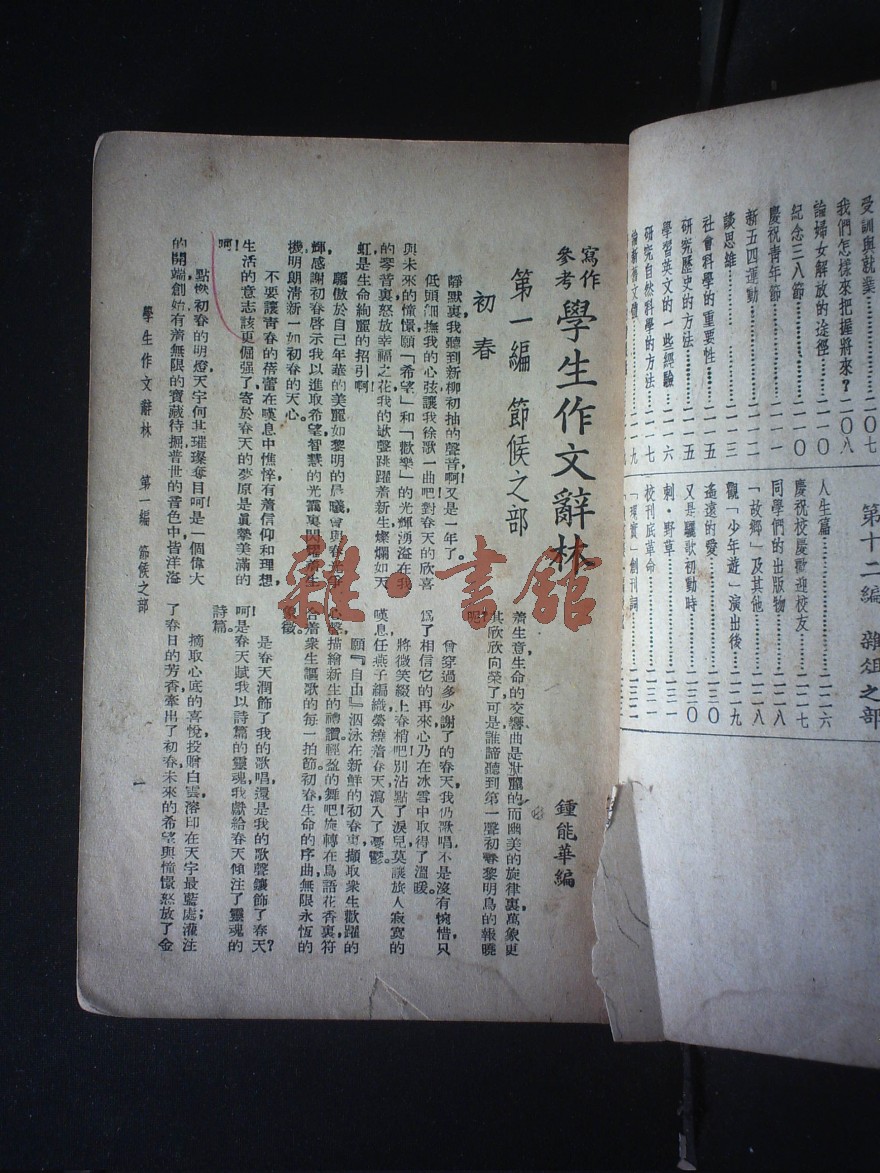 受訓與就業……二〇七
我們怎樣來把握將來？二〇八
論婦女解放的途徑……二一〇
紀念三八節……二一〇
慶祝青年節……二一一
新五四運動……二一二
談思維……二一三
社會科學的重要性……二一五
研究歷史的方法……二一五
學習英文的一些經驗……二一六
研究自然科學的方法……二一七
第十二編 雜俎之部
人生篇……二二六
慶祝校慶歡迎校友……二二七
同學們的出版物……二二八
「故鄉」及其他……二二八
觀「少年遊」演出後……二二九
遙遠的愛……二三〇
又是驪歌初動時……二三〇
刺·野草
校刊底革命……二三一
「現實」創刊詞……二三二
寫作參考 學生作文辭林
鍾能華編
第一編 節候之部
初春
靜默裏我聽到新柳初抽的聲音啊！又是一年了。
低頭細撫我的心弦，讓我徐歌一曲吧！對春天的欣喜
與未來的憧憬，願「希望」和「歡樂」的光輝湧溢在我
的琴音裏，怒放幸福之花，我的歌聲跳躍着新生，燦爛如天
虹，是生命絢麗的招引啊！
驕傲於自己年華的美麗，如黎明的晨曦，會與春光爭
輝，感謝初春啓示我以進取，希望智慧的光霞裏閃耀着生
機，明朗清新一如初春的天心。
不要讓青春的蓓蕾在嘆息中憔悴，有着信仰和理想，
生活的意志該更倔强了，寄於春天的夢原是眞摯美滿的
啊！
點燃初春的明燈，天宇何其璀璨奪目，呵！是一個偉大
的開端，創始有着無限的寶藏待掘，普世的春色中，皆洋溢
着生意，生命的交響曲是壯麗的，而幽美的旋律裏，萬象更
其欣欣向榮了，可是誰諦聽到第一聲初春黎明鳥的報曉
呢？
曾穿過多少謝了的春天，我仍歌唱，不是沒有惋惜，只
爲了相信它的再來，心乃在冰雪中取得了溫暖。
將微笑綴上春梢吧！別沾點了淚兒，莫讓旅人寂寞的
嘆息，任燕子編織縈繞着春天瀉入了憂鬱。
願『自由』泅泳在新鮮的初春裏，擷取衆生歡躍的
心聲，描繪新生的禮讚，輕盈的舞吧！旋轉在鳥語花香裏，符
合着衆生謳歌的每一拍節，初春生命的序曲，無限永恆的
象徵。
是春天潤飾了我的歌唱，還是我的歌聲鑲飾了春天？
呵！是春天賦我以詩篇的靈魂，我獻給春天傾注了靈魂的
詩篇。
摘取心底的喜悅，投贈白雲，溶印在天宇最藍處；灌注
了春日的芳香，牽出了初春未來的希望與憧憬，怒放了金
學生作文辭林 第一編 節候之部
一
雜·書館